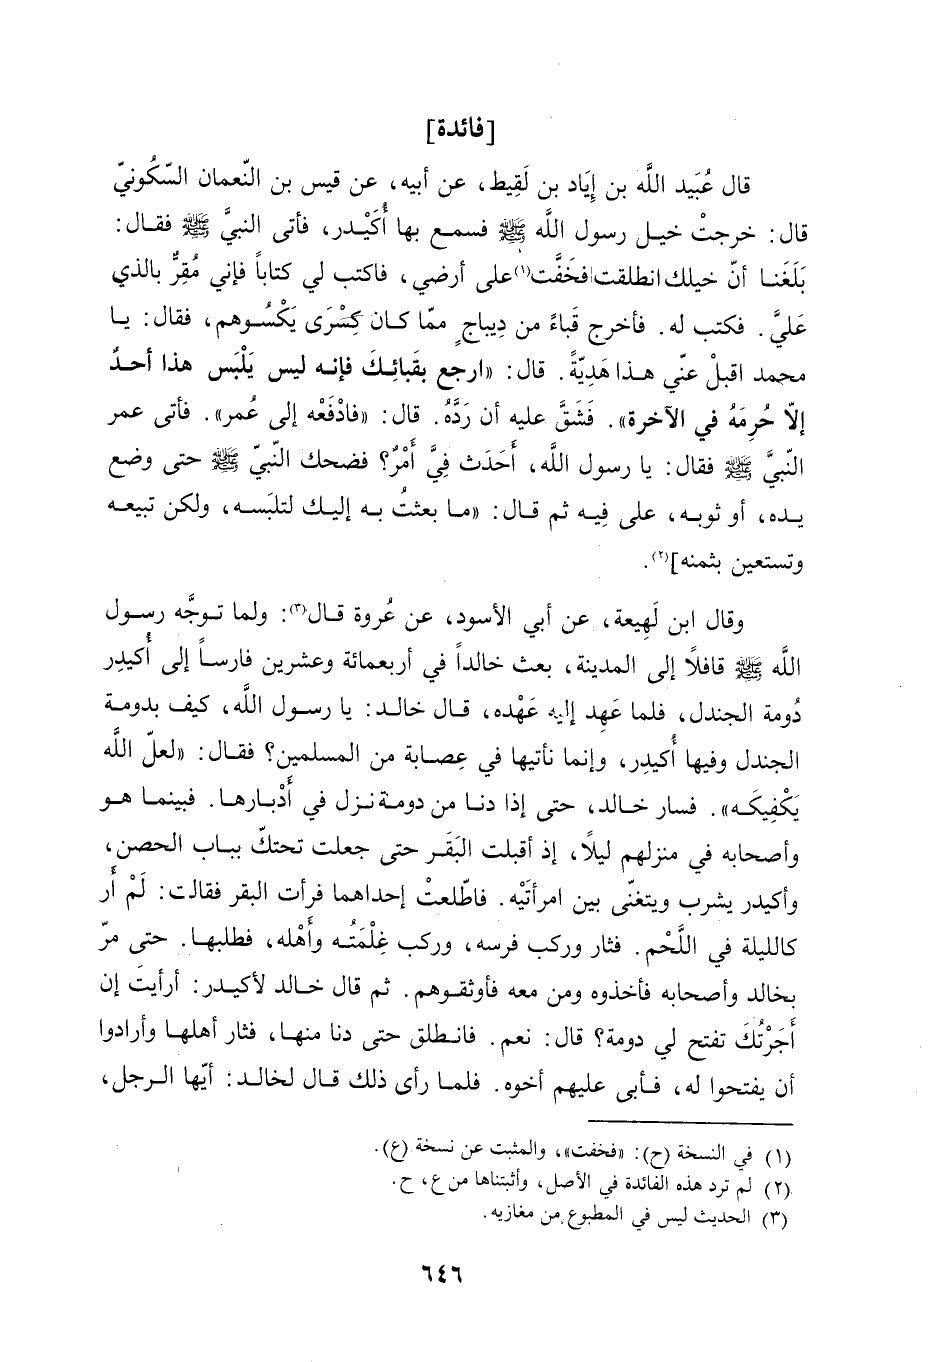 [فائدة]
قال عُبَيد اللَّه بن إِيَاد بن لَقِيط، عن أبيه، عن قيس بن النّعمان السّكُونيّ
قال: خرجتْ خيل رسول اللَّه ﷺ فسمع بها أُكَيْدر، فأتى النبيَّ ﷺ فقال:
بَلَغَنا أنّ خيلك انطلقت فخَفَّت(١) على أرضي، فاكتب لي كتاباً فإني مُقِرٌّ بالذي
عَليَّ. فكتب له. فأخرج قَباءً من دِيباجٍ ممّا كان كِسْرَى يَكْسُوهم، فقال: يا
محمد اقبلْ عنّي هذا هَدِيّةً. قال: «ارجع بقَبائِكَ فإنه ليس يَلْبَس هذا أحدٌ
إلّا حُرِمَهُ في الآخرة». فَشَقَّ عليه أن رَدَّهُ. قال: «فادْفَعْه إلى عُمر». فأتى عمر
النّبيَّ ﷺ فقال: يا رسول اللَّه، أَحَدَث فِيَّ أَمْرٌ؟ فضحك النّبيّ ﷺ حتى وضع
يده، أو ثوبه، على فِيه ثم قال: «ما بعثتُ به إليك لتلبَسه، ولكن تبيعه
وتستعين بثمنه](٢).
وقال ابن لَهِيعة، عن أبي الأسود، عن عُروة قال(٣): ولما توجَّه رسول
اللَّه ﷺ قافلًا إلى المدينة، بعث خالداً في أربعمائة وعشرين فارساً إلى أُكيدِر
دُومة الجندل، فلما عَهِد إليه عَهْده، قال خالد: يا رسول اللَّه، كيف بدومة
الجندل وفيها أُكيدِر، وإنما نأتيها في عِصابة من المسلمين؟ فقال: «لعلّ اللَّه
يَكْفِيكَه». فسار خالد، حتى إذا دنا من دومة نزل في أَدْبارها. فبينما هو
وأصحابه في منزلهم ليلًا، إذ أقبلت البَقَر حتى جعلت تحتكّ بباب الحصن،
وأكيدر يشرب ويتغنّى بين امرأتَيْه. فاطّلعتْ إحداهما فرأت البقر فقالت: لَمْ أَر
كالليلة في اللَّحْم. فثار وركب فرسه، وركب غِلْمَتُه وأَهْله، فطلبها. حتى مرّ
بخالد وأصحابه فأخذوه ومن معه فأوثقوهم. ثم قال خالد لأكيدر: أرأيتَ إن
أَجَرْتُكَ تفتح لي دومة؟ قال: نعم. فانطلق حتى دنا منها، فثار أهلها وأرادوا
أن يفتحوا له، فأبى عليهم أخوه. فلما رأى ذلك قال لخالد: أيّها الرجل،
(١) في النسخة (ح): «فخفت»، والمثبت عن نسخة (ع).
(٢) لم ترد هذه الفائدة في الأصل، وأثبتناها من ع، ح.
(٣) الحديث ليس في المطبوع من مغازيه.
٦٤٦